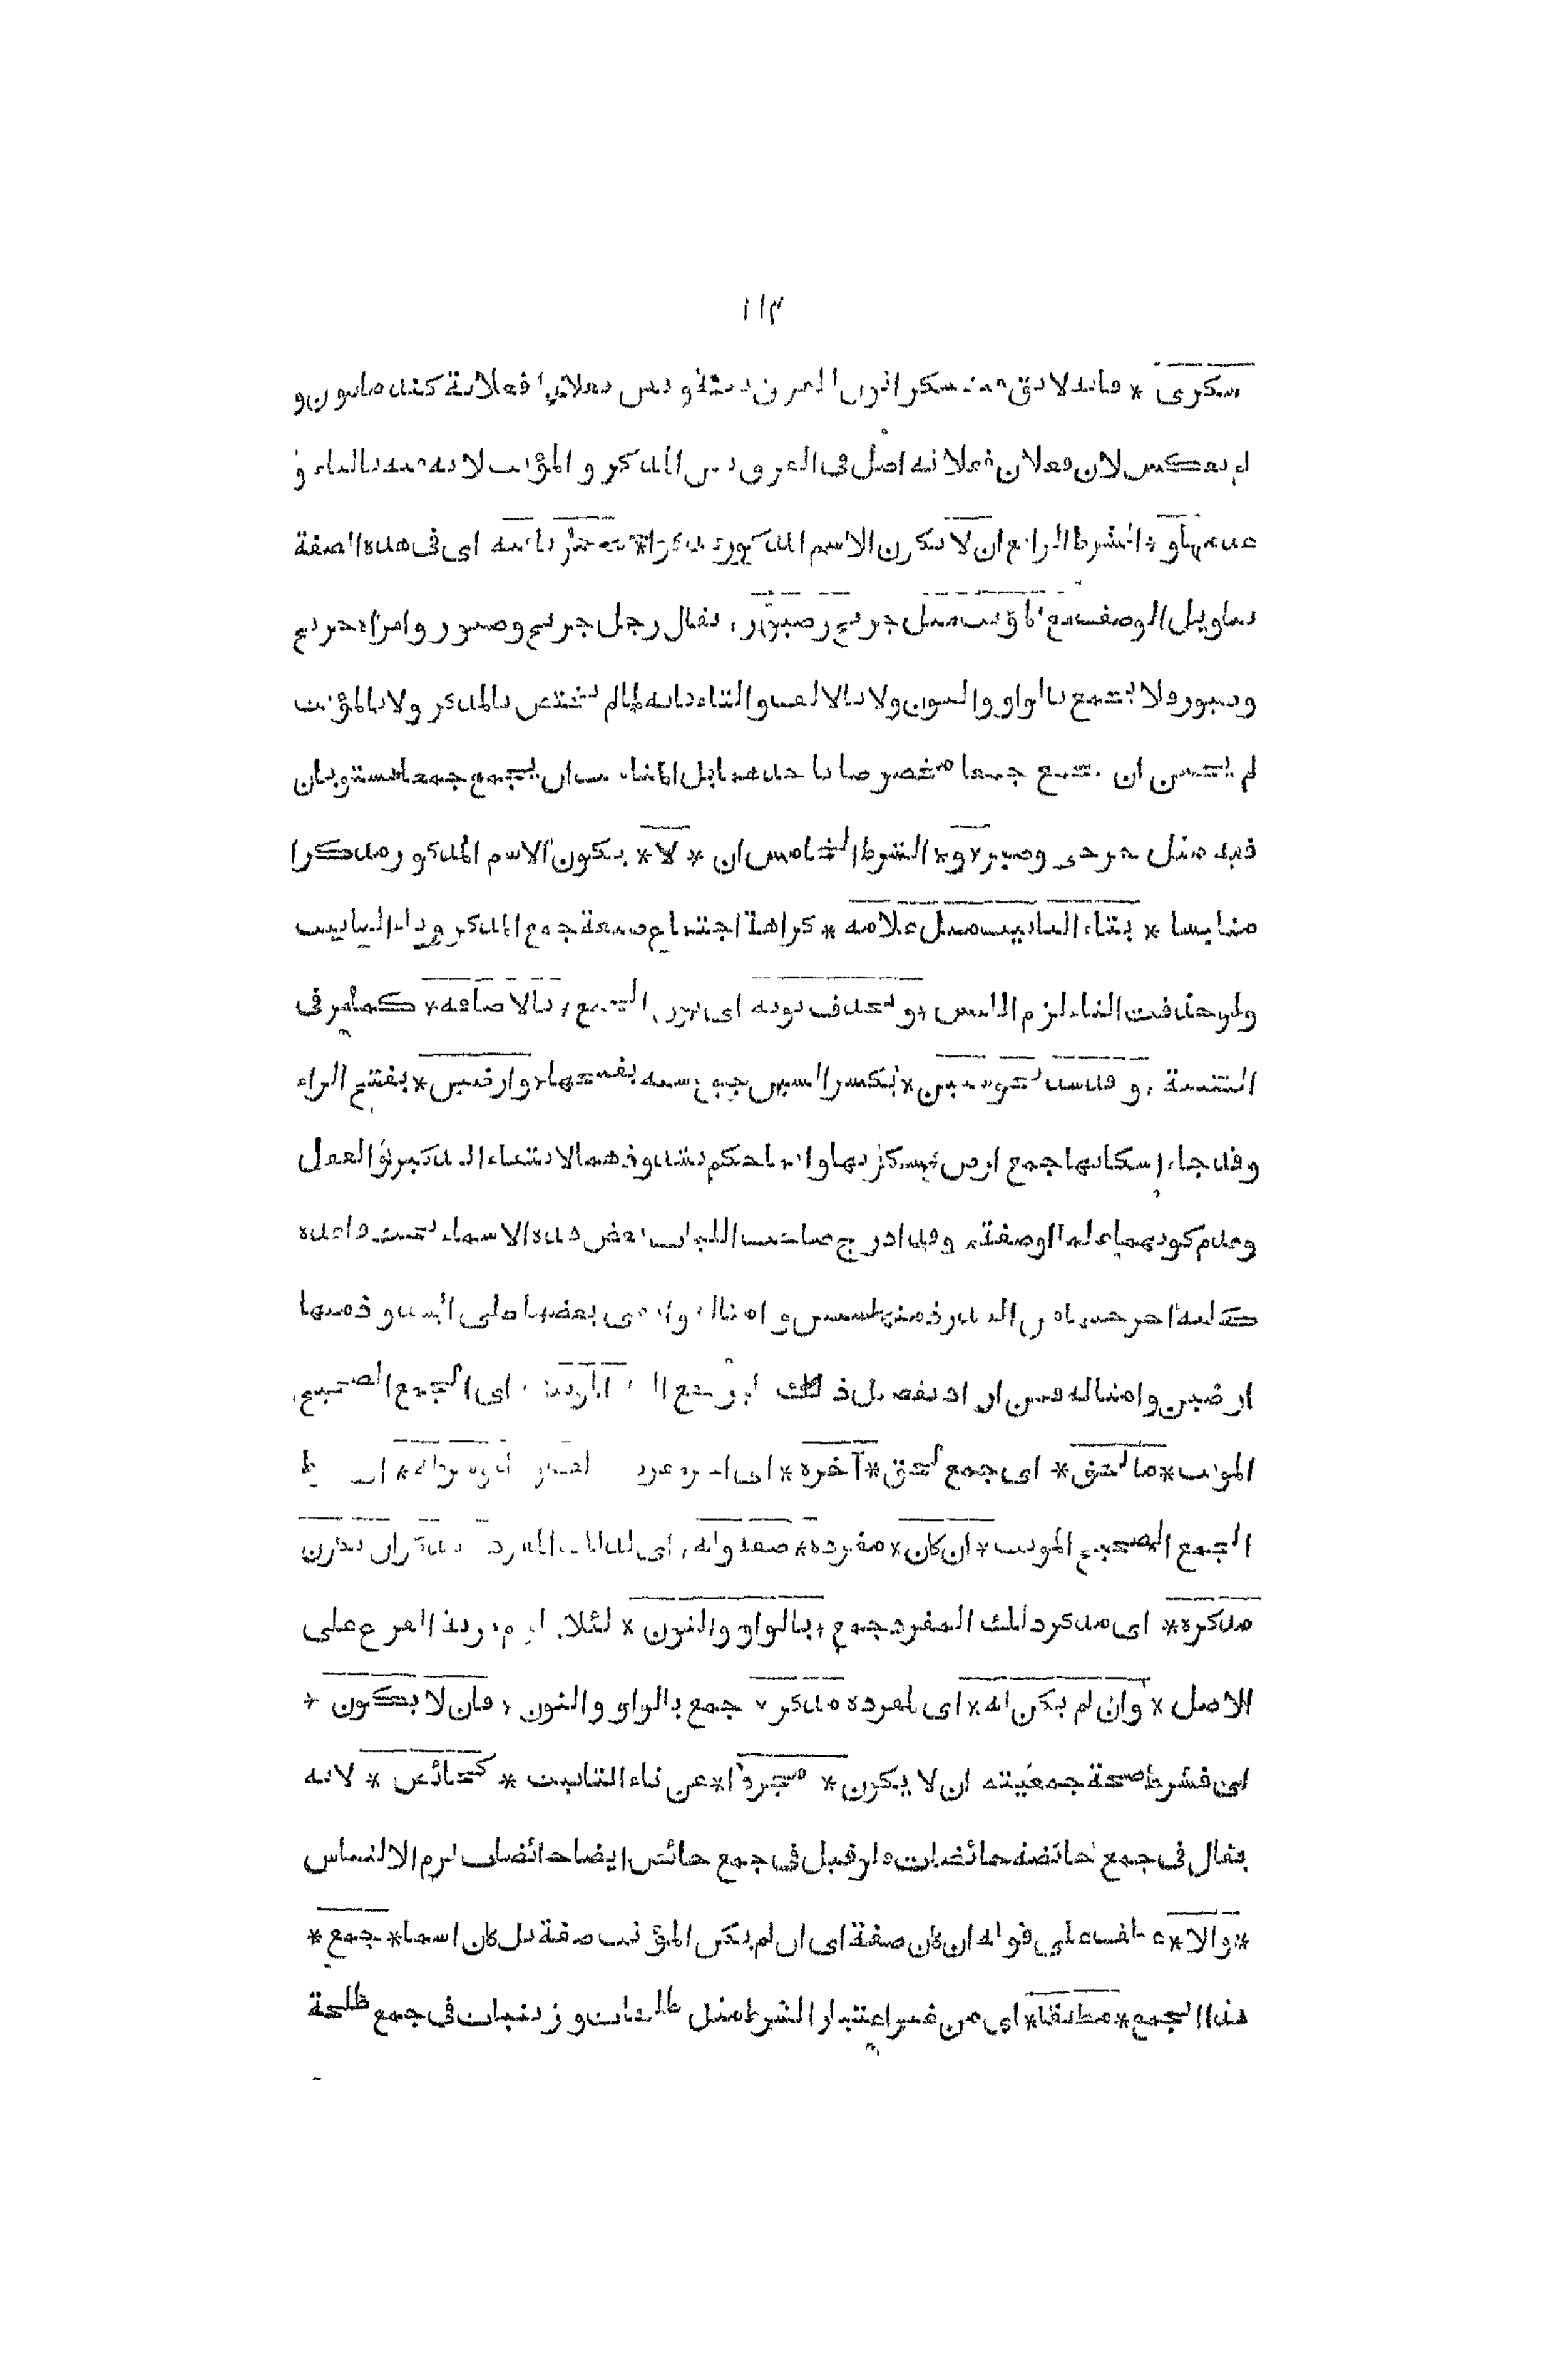 ١١٣
سكرى * فانه لا يق فيه سكرانون للفرق بينه وبين فعلان فعلانة كندمانون و
لم يعكس لان فعلان فعلانه اصل فى الفرق بين المذكر و المؤنث لانه فيه بالتاء و
عدمها و * الشرط الرابع ان لا يكون الاسم المذكور مذكرا * مستويا فيه اى فى هذه الصفة
بتاويل الوصف مع المؤنث مثل جريح و صبور * يقال رجل جريح وصبور وامراة جريح
وصبور ولا يجمع بالواو والنون ولا بالالف والتاء فانه لما لم يختص بالمذكر ولا بالمؤنث
لم يحسن ان يجمع جمعا مخصوصا باحدهما بل المناسب ان يجمع جمعا يستويان
فيه مثل جرحى وصبر * و * الشرط الخامس ان * لا * يكون الاسم المذكور مذكرا
متلبسا * بتاء التانيث مثل علامه * كراهة اجتماع صيغة جمع المذكر وتاء التانيث
ولو حذفت التاء لزم اللبس * و تحذف نونه اى نون الجمع * بالاضافه * كما مر فى
التثنية * و قد شذ نحو سنين * بكسر السين جمع سنه بفتحها * وارضين * بفتح الراء
وقد جاء اسكانها جمع ارض بسكونها وانما حكم بشذوذهما لانتفاء التذكير والعقل
وعدم كونهما علما او صفة وقد ادرج صاحب اللباب بعض هذه الاسماء تحت قاعدة
كلية اخرجها من الشذوذ منها سنين و امثاله وابقى بعضها على الشذوذ منها
ارضين وامثاله فمن اراد تفصيل ذلك اى الجمع الصحيح
المؤنث * ما لحق * اى جمع لحق * آخره * اى آخر مفرده
الجمع الصحيح المؤنث * ان كان * مفرده * صفة وله * اى لذلك المفرد * مذكر فان يكون
مذكره * اى مذكر ذلك المفرد جمع * بالواو والنون * لئلا يلزم مزية الفرع على
الاصل * وان لم يكن له * اى لمفرده مذكر * جمع بالواو والنون * فان لا يكون *
اى فشرط صحة جمعيته ان لا يكون * مجردا * عن تاء التانيث * كحائض * لانه
يقال فى جمع حائضة حائضات فلو قيل فى جمع حائض ايضا حائضات لزم الالتباس
* والا * عطف على قوله ان كان صفة اى ان لم يكن المؤنث صفة بل كان اسما * جمع *
هذا الجمع * مطلقا * اى من غير اعتبار الشرط مثل طلحات و زينبات فى جمع طلحة